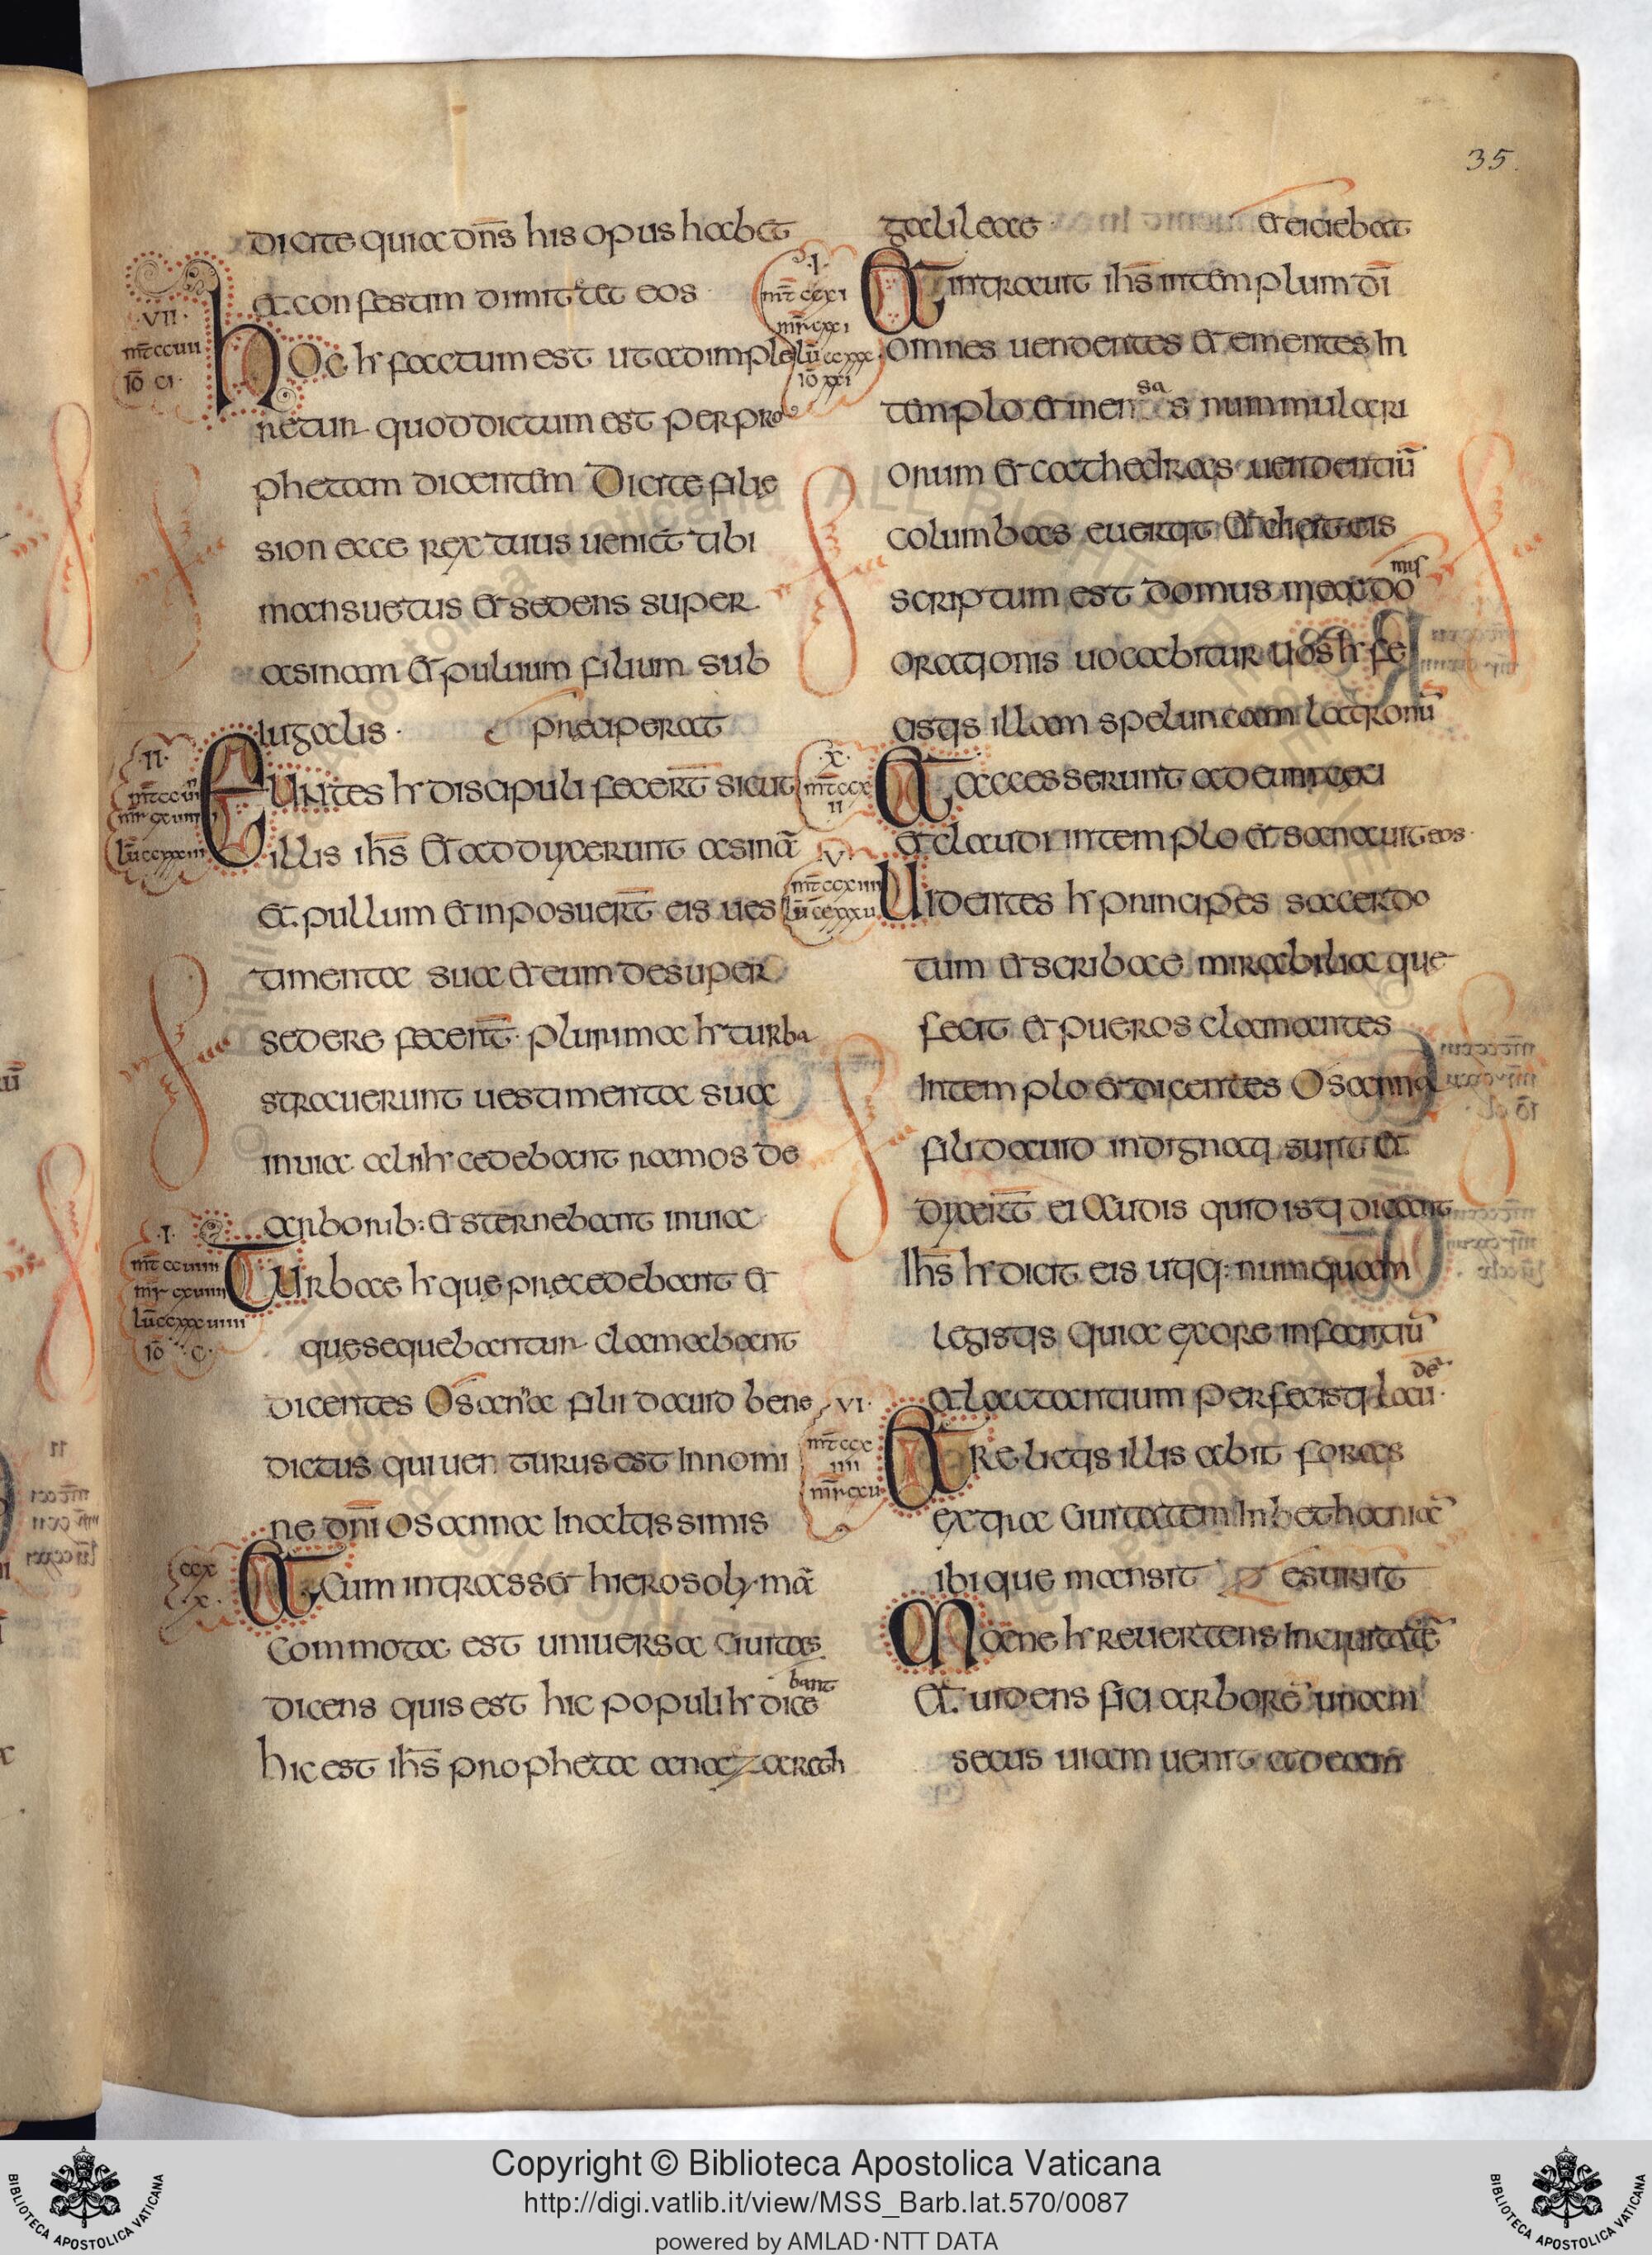 35.
dicite quia dñs his opus habet
et confestim dimittet eos
·VII·
mt̄ ccuii
iō ci·
hoc hr factum est ut adimple
retur quod dictum est per pro
phetam dicentem Dicite filie
sion ecce rex tuus ueniet tibi
mansuetus et sedens super
asinam et pullum filium sub
iugalis· preciperat
·II·
Euntes hr discipuli fecer̄t sicut
illis ihs̄ et adduxerunt asinā
et pullum et inposuer̄t eis ues
timenta sua et eum desuper
sedere fecer̄t· plurima hr turba
strauerunt uestimenta sua
in uia alii hr cedebant ramos de
arborib: et sternebant in uia
·I·
mt̄ ccuiiii
iō c·
Turbae hr que precedebant et
que sequebantur clamabant
dicentes Osanna filii dauid bene
dictus qui uenturus est In nomi
ne dn̄i osanna In altissimis
ccx
·x·
Et cum intrasset hierosolymā
commota est uniuersa ciuitas
dicens quis est hic populi hr dice
bant
hic est ihs̄ propheta a nazareth
galileae· et eiciebat
·I·
mt̄ ccxi
mr̄ cxxi
lū ccxxx
iō xxi
Et intrauit ihs̄ in templum dī
omnes uendentes et ementes In
templo et mensas nummulari
orum et cathedras uendentiū
columbas euertit et dicit eis
scriptum est domus mea do
mus
orationis uocabitur uos hr fe
cistis illam speluncam latronū
·X·
mt̄ ccx
II
Et accesserunt ad eum ceci
et claudi in templo et sanauit eos·
·V·
mt̄ ccxiii
lū ccxxu
Uidentes hr principes sacerdo
tum et scribae mirabilia que
fecit et pueros clamantes
In templo et dicentes Osanna
filii dauid indignati sunt et
dixer̄t ei Audis quid isti dicant
Ihs̄ hr dicit eis utiq: numquam
legistis Quia ex ore infantiū
et lactantium perfecisti lau
dē·
·VI·
mt̄ ccx
IIII
mr̄ cxu
Et relictis illis abit foras
extra Ciuitatem In bethaniā
ibique mansit esuriit
Mane hr reuertens In ciuitatē
Et uidens fici arborē unam
secus uiam uenit ad eam
Copyright © Biblioteca Apostolica Vaticana
http://digi.vatlib.it/view/MSS_Barb.lat.570/0087
powered by AMLAD·NTT DATA
BIBLIOTECA APOSTOLICA VATICANA
BIBLIOTECA APOSTOLICA VATICANA